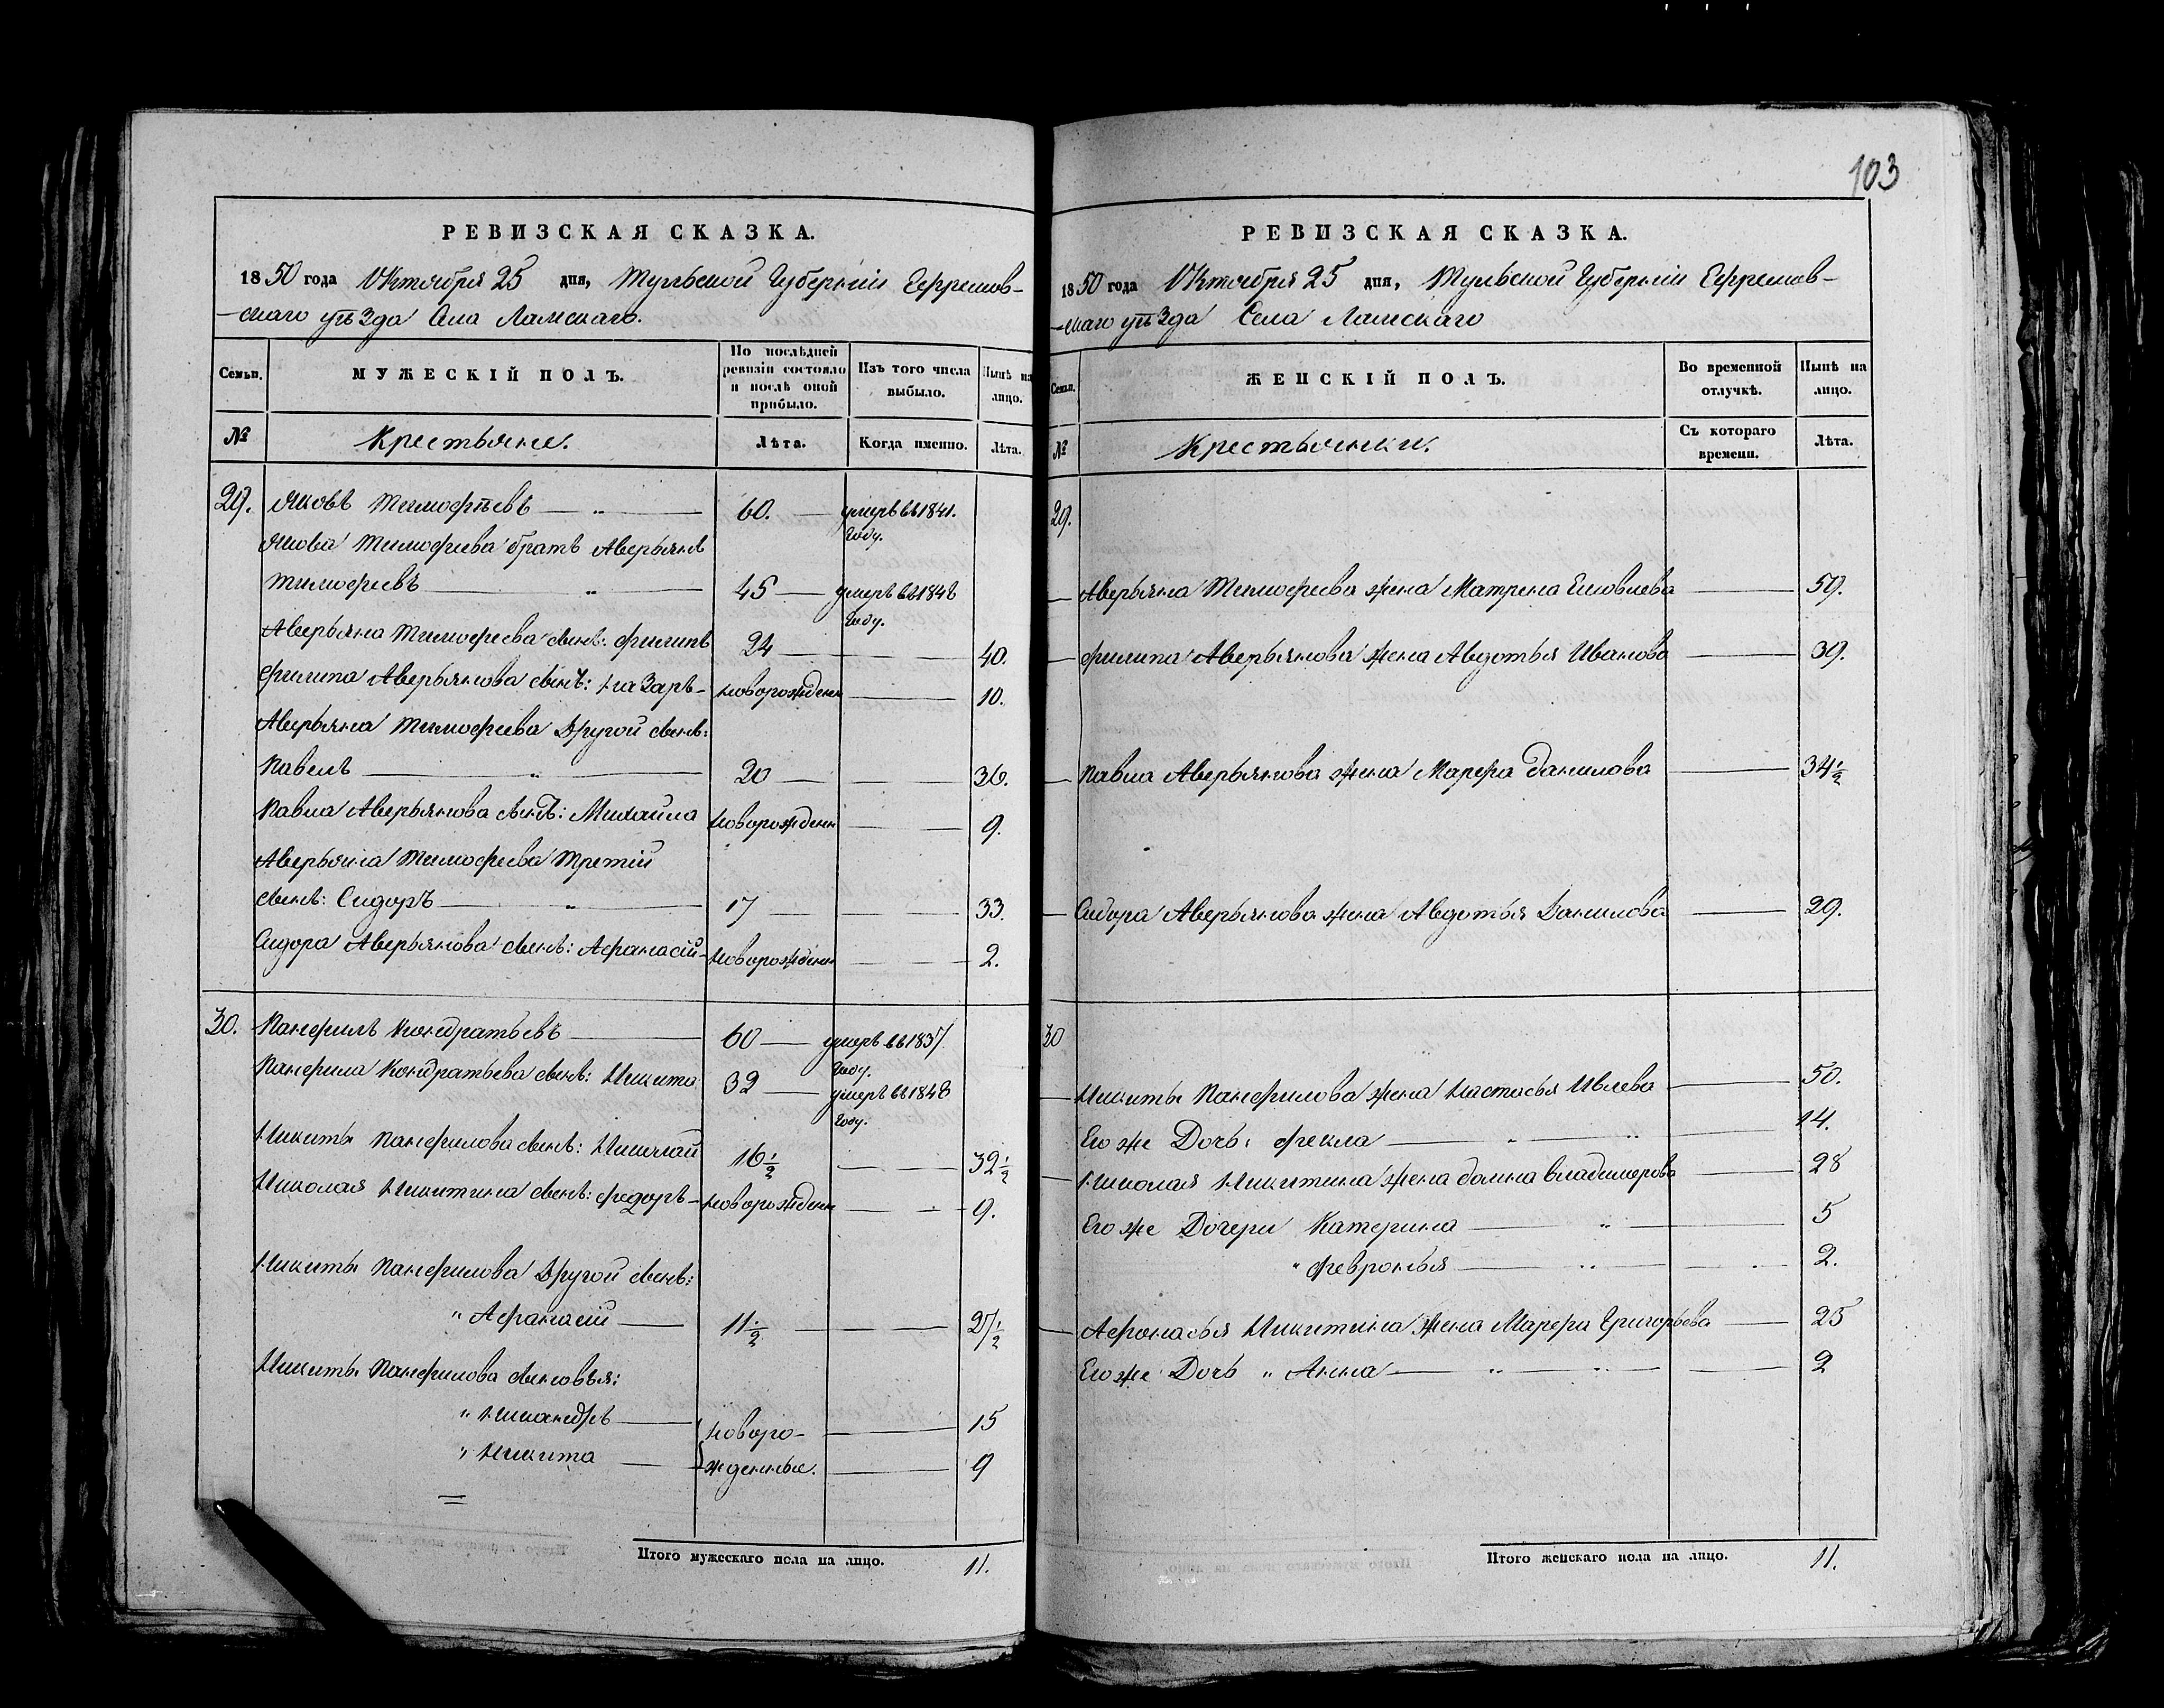 103
РЕВИЗСКАЯ СКАЗКА.
1850 года Октября 25 дня, Тульской Губерніи Ефремов-
-скаго уѣзда Села Ламскаго.
Семьи.
МУЖЕСКІЙ ПОЛЪ.
По послѣдней ревизіи состояло и послѣ оной прибыло.
Изъ того числа выбыло.
Нынѣ на лицо.
№
Крестьяне.
Лѣта.
Когда именно.
Лѣта.
29. Яковъ Тимофѣевъ — " — 60. — умеръ въ 1841.
году.
Якова Тимофеева братъ Аверьянъ
Тимофеевъ — " — 45 — умеръ въ 1848
году.
Аверьяна Тимофеева сынъ: Филипъ 24 — — 40.
Филипа Аверьянова сынъ: Назаръ — новорожден — 10.
Аверьяна Тимофеева Другой сынъ:
Павелъ — " — 20 — — 36.
Павла Аверьянова сынъ: Михайла новорожден — — 9.
Аверьяна Тимофеева Третій
сынъ: Сидоръ — " — 17 — — — 33.
Сидора Аверьянова сынъ: Афанасій — новорожден — — 2.
30. Панфилъ Кондратьевъ — 60 — умеръ въ 1837
году.
Панфила Кондратьева сынъ: Никита 32 — умеръ въ 1848
году.
Никиты Панфилова сынъ: Николай 16 1/2 — — 32 1/2
Николая Никитина сынъ: Федоръ — новорожден — — 9.
Никиты Панфилова Другой сынъ:
" Афанасій — 11 1/2 — — 27 1/2
Никиты Панфилова сыновья:
" Никандръ — новоро- — 15
" Никита — жденные. — 9
Итого мужескаго пола на лицо. 11.
РЕВИЗСКАЯ СКАЗКА.
1850 года Октября 25 дня, Тульской Губерніи Ефремов-
-скаго уѣзда Села Ламскаго
Семьи.
ЖЕНСКІЙ ПОЛЪ.
Во временной отлучкѣ.
Нынѣ на лицо.
№
Крестьянки.
Съ котораго времени.
Лѣта.
29.
— Аверьяна Тимофеева жена Матрена — 59.
— Филипа Аверьянова жена Авдотья Иванова — 39.
— Павла Аверьянова жена Марфа Данилова — 34 1/2
— Сидора Аверьянова жена Авдотья Данилова — 29.
30
— Никиты Панфилова жена Настасья Ивлева — 50.
Его же Дочь: Фекла — " — " — 14.
— Николая Никитина жена Домна Владимерова — 28
Его же Дочери Катерина — " — 5
" Февронья — " — — 2.
— Афонасья Никитина жена Марфа Григорьева — 25
Его же Дочь " Анна — " — " — 2
Итого женскаго пола на лицо. 11.